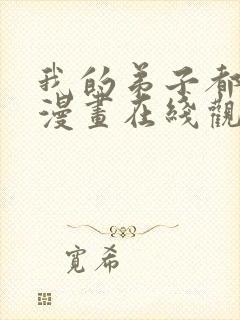 我的弟子都
漫畫在綫觀
寬希